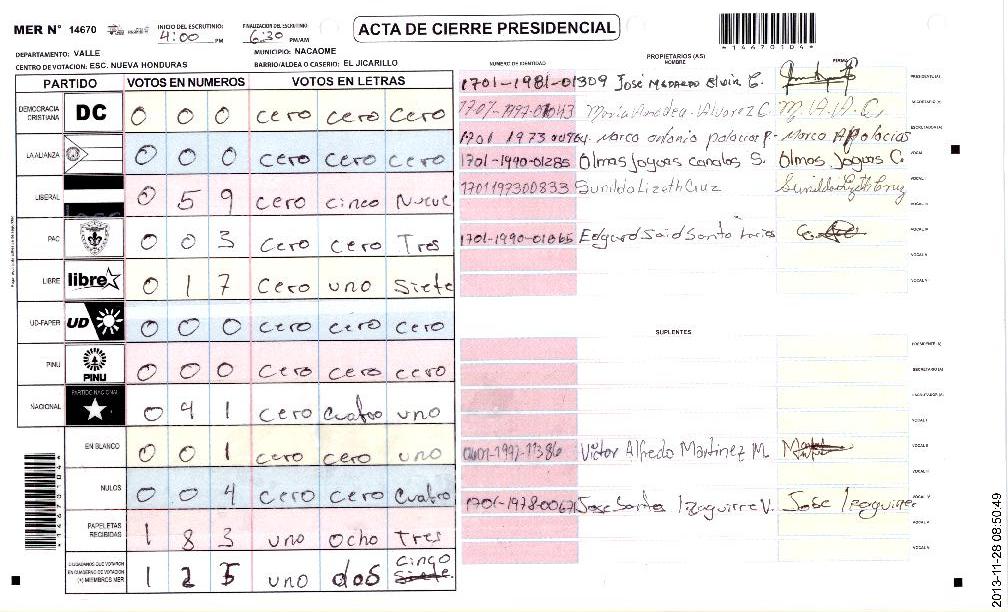 MER N° 14670 INICIO DEL ESCRUTINIO 4:00 PM FINALIZACION DEL ESCRUTINIO 6:30 PM/AM
ACTA DE CIERRE PRESIDENCIAL
*14670104*
DEPARTAMENTO: VALLE MUNICIPIO: NACAOME
CENTRO DE VOTACION: ESC. NUEVA HONDURAS BARRIO/ALDEA O CASERIO: EL JICARILLO
PARTIDO VOTOS EN NUMEROS VOTOS EN LETRAS
DEMOCRACIA CRISTIANA DC 0 0 0 cero cero cero
LA ALIANZA 0 0 0 cero cero cero
LIBERAL 0 5 9 cero cinco Nueve
PAC 0 0 3 cero cero Tres
LIBRE libre 0 1 7 cero uno siete
UD-FAPER UD 0 0 0 cero cero cero
PINU PINU 0 0 0 cero cero cero
NACIONAL PARTIDO NACIONAL 0 4 1 cero cuatro uno
EN BLANCO 0 0 1 cero cero uno
NULOS 0 0 4 cero cero cuatro
PAPELETAS RECIBIDAS 1 8 3 uno ocho Tres
CIUDADANOS QUE VOTARON EN CUADERNO DE VOTACION (+) MIEMBROS MER 1 2 5 uno dos cinco
*14670104*
PROPIETARIOS (AS)
NUMERO DE IDENTIDAD NOMBRE FIRMA
1701-1981-01309 José PRESIDENTE(A)
SECRETARIO(A)
1701 1973 Marco antonio palacios P- Marco A Palacios ESCRUTADOR(A)
1701-1990-01285 Olmas Joguas canales S. Olmos Joguas C. VOCAL I
1701197300833 Sunilda Lizeth Cruz Sunilda Lizeth Cruz VOCAL II
VOCAL III
1701-1990-01065 Edgard Said Santo VOCAL IV
VOCAL V
SUPLENTES
PRESIDENTE (A)
SECRETARIO (A)
ESCRUTADOR (A)
VOCAL I
Victor Alfredo Martinez M. VOCAL II
VOCAL III
Jose Santos Izaguirre V. Jose Izaguirre VOCAL IV
VOCAL V
2013-11-28 08:50:49